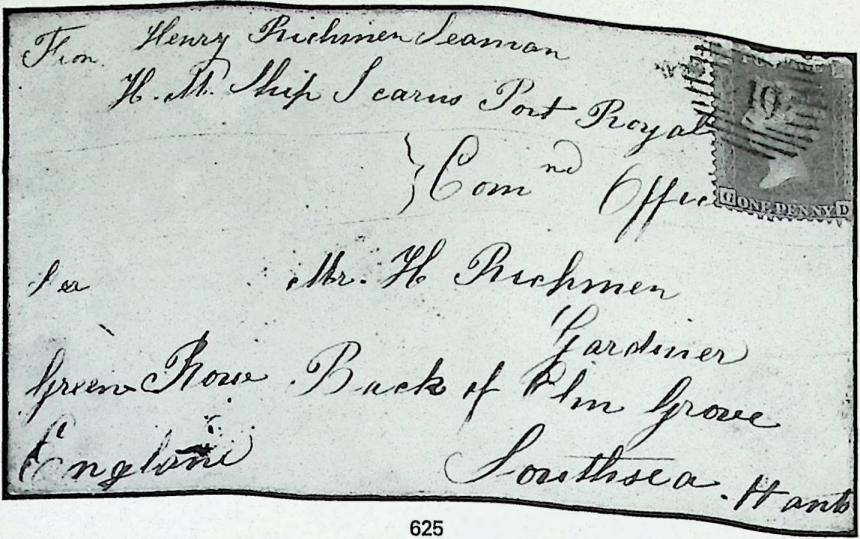 From Henry Richmen Seaman
H. M. Ship Icarus Port Royal
} Com nd Office
Mr. H Richmen
Gardiner
Green Row Back of Elm Grove
England Southsea. Hants
10
G ONE PENNY D
625